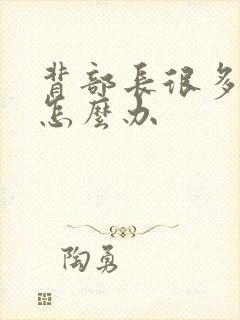 背部長很多
怎麼办
陶勇